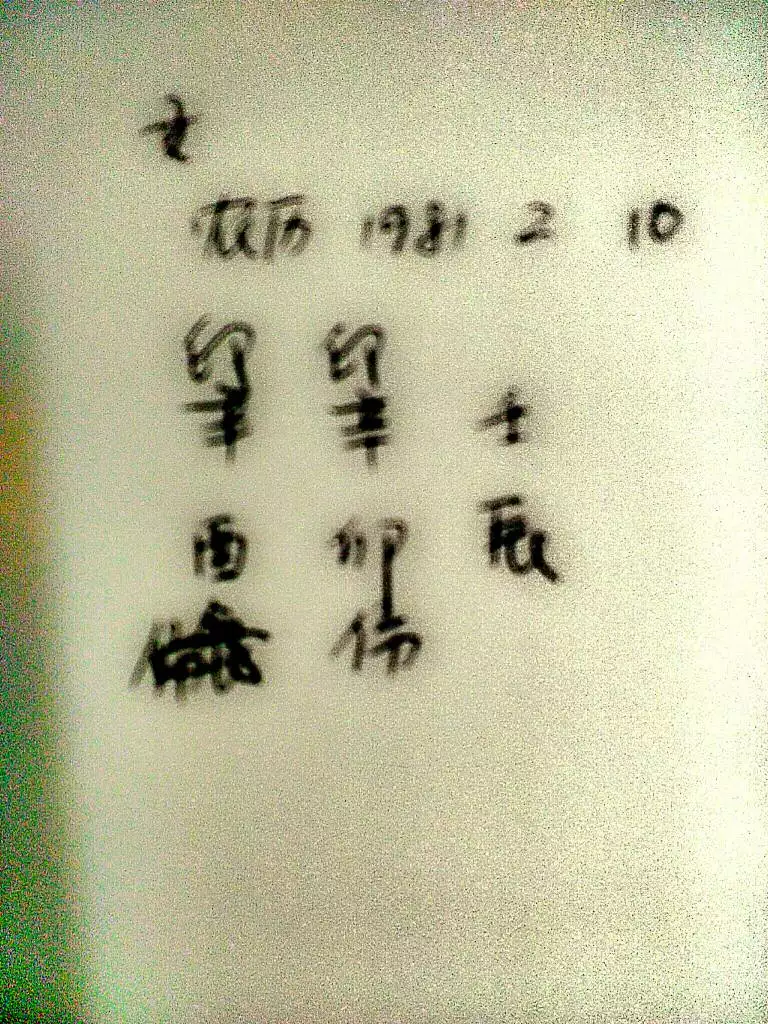 女
农历 1981 2 10
印 印
辛 辛 壬
酉 卯 辰
伤